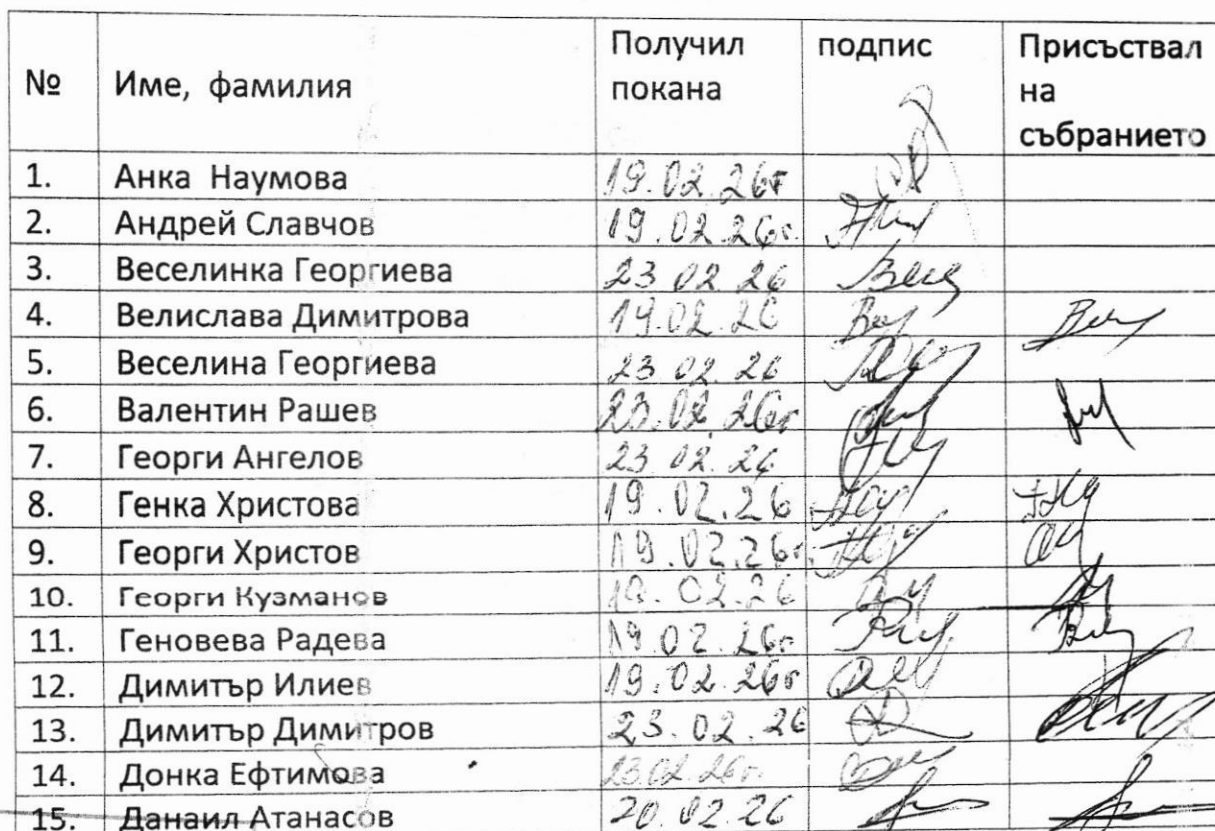 № Име, фамилия Получил покана подпис Присъствал на събранието
1. Анка Наумова 19.02.26г
2. Андрей Славчов 19.02.26г.
3. Веселинка Георгиева 23.02.26
4. Велислава Димитрова 19.02.26
5. Веселина Георгиева 23.02.26
6. Валентин Рашев 23.02.26г
7. Георги Ангелов 23.02.26
8. Генка Христова 19.02.26
9. Георги Христов 19.02.26г.
10. Георги Кузманов 19.02.26
11. Геновева Радева 19.02.26г
12. Димитър Илиев 19.02.26г
13. Димитър Димитров 23.02.26
14. Донка Ефтимова 23.02.26г.
15. Данаил Атанасов 20.02.26